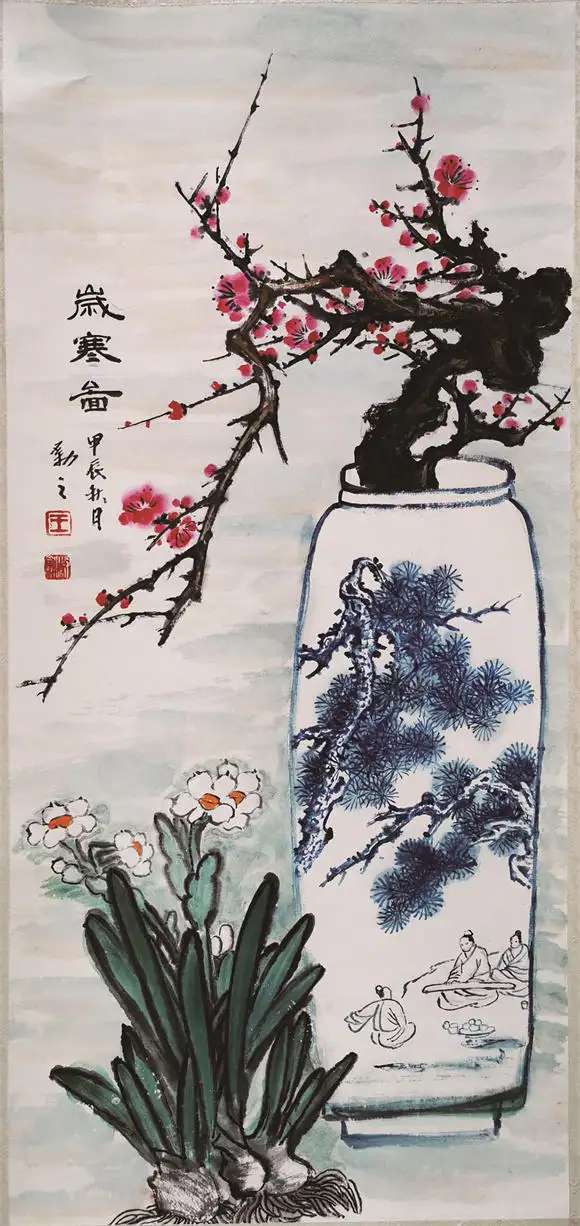 歲寒啚
甲辰秋月
勤之
王